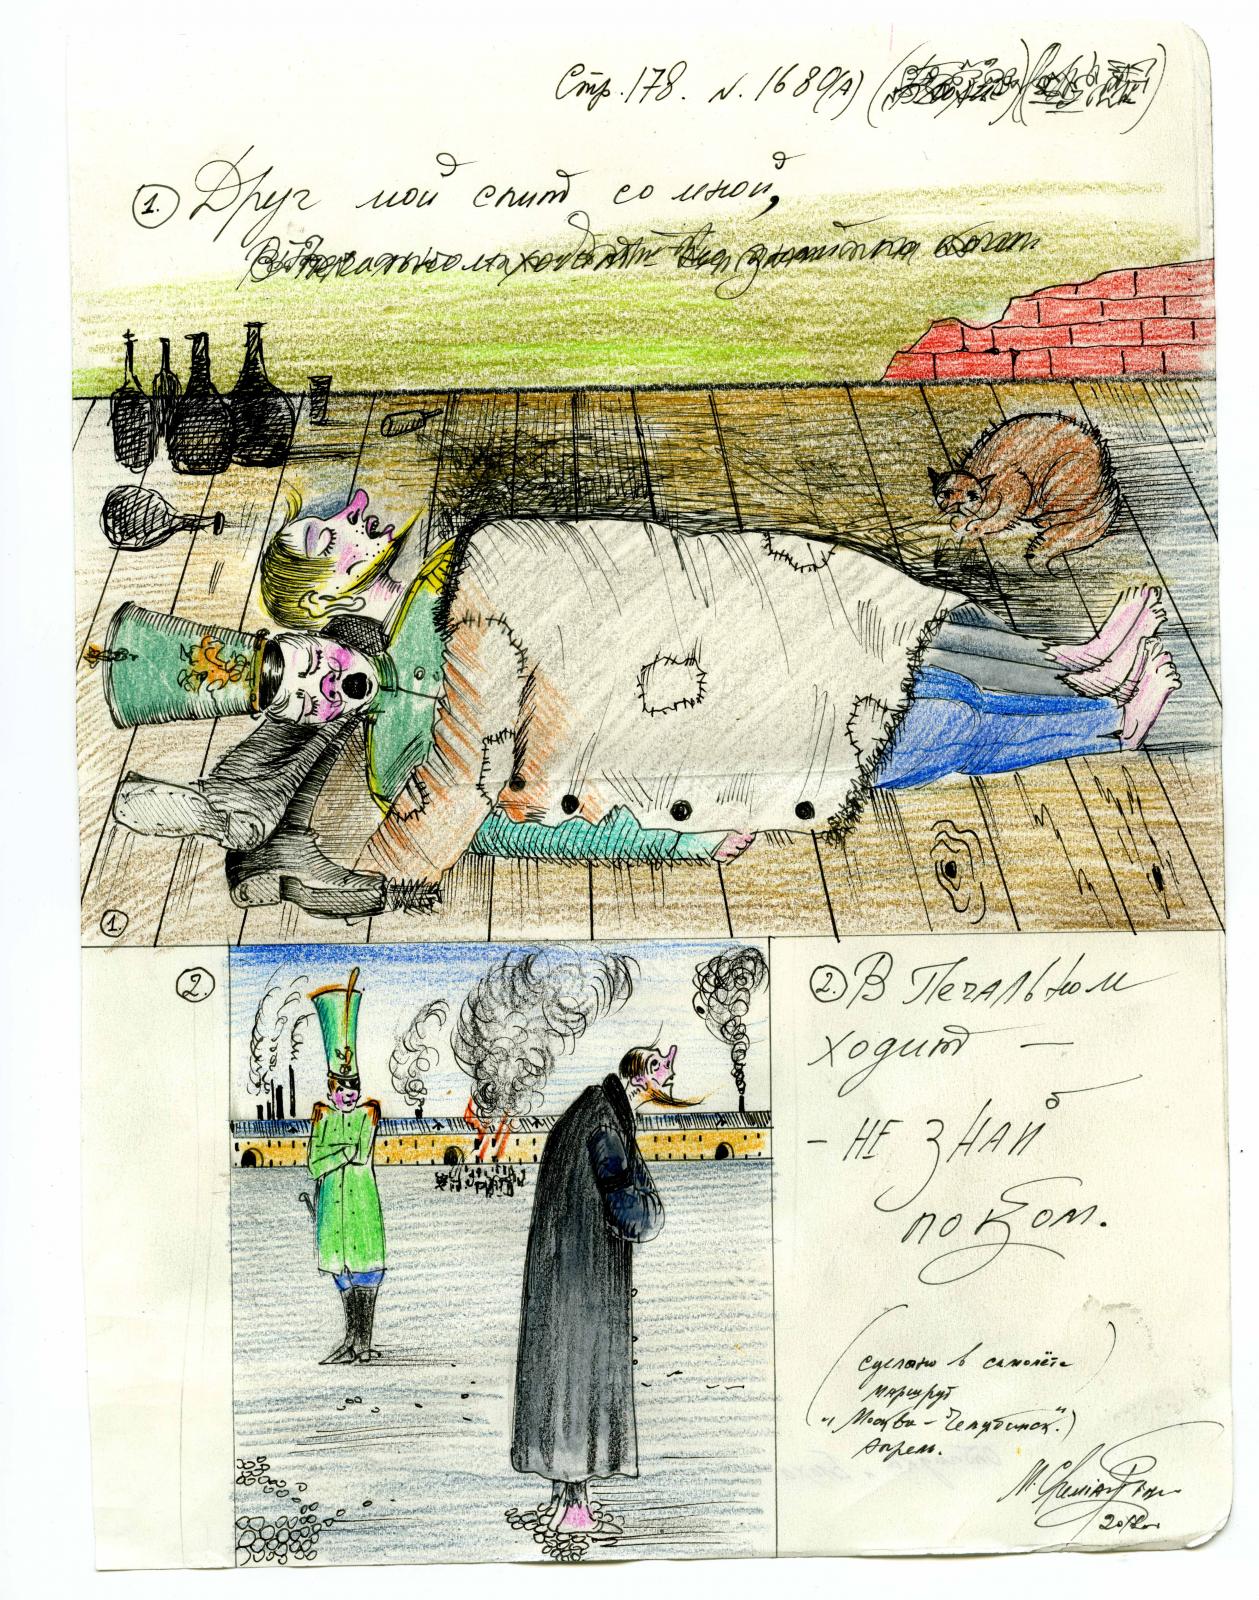 Стр. 178. N. 1680(А)
1. Друг мой спит со мной,
1.
2.
2. В Печальном
ходит —
- НЕ ЗНАЙ
по ком.
(сделано в самолёте
маршрут
"Москва - Челябинск.")
Апрель.
М. 
2012г